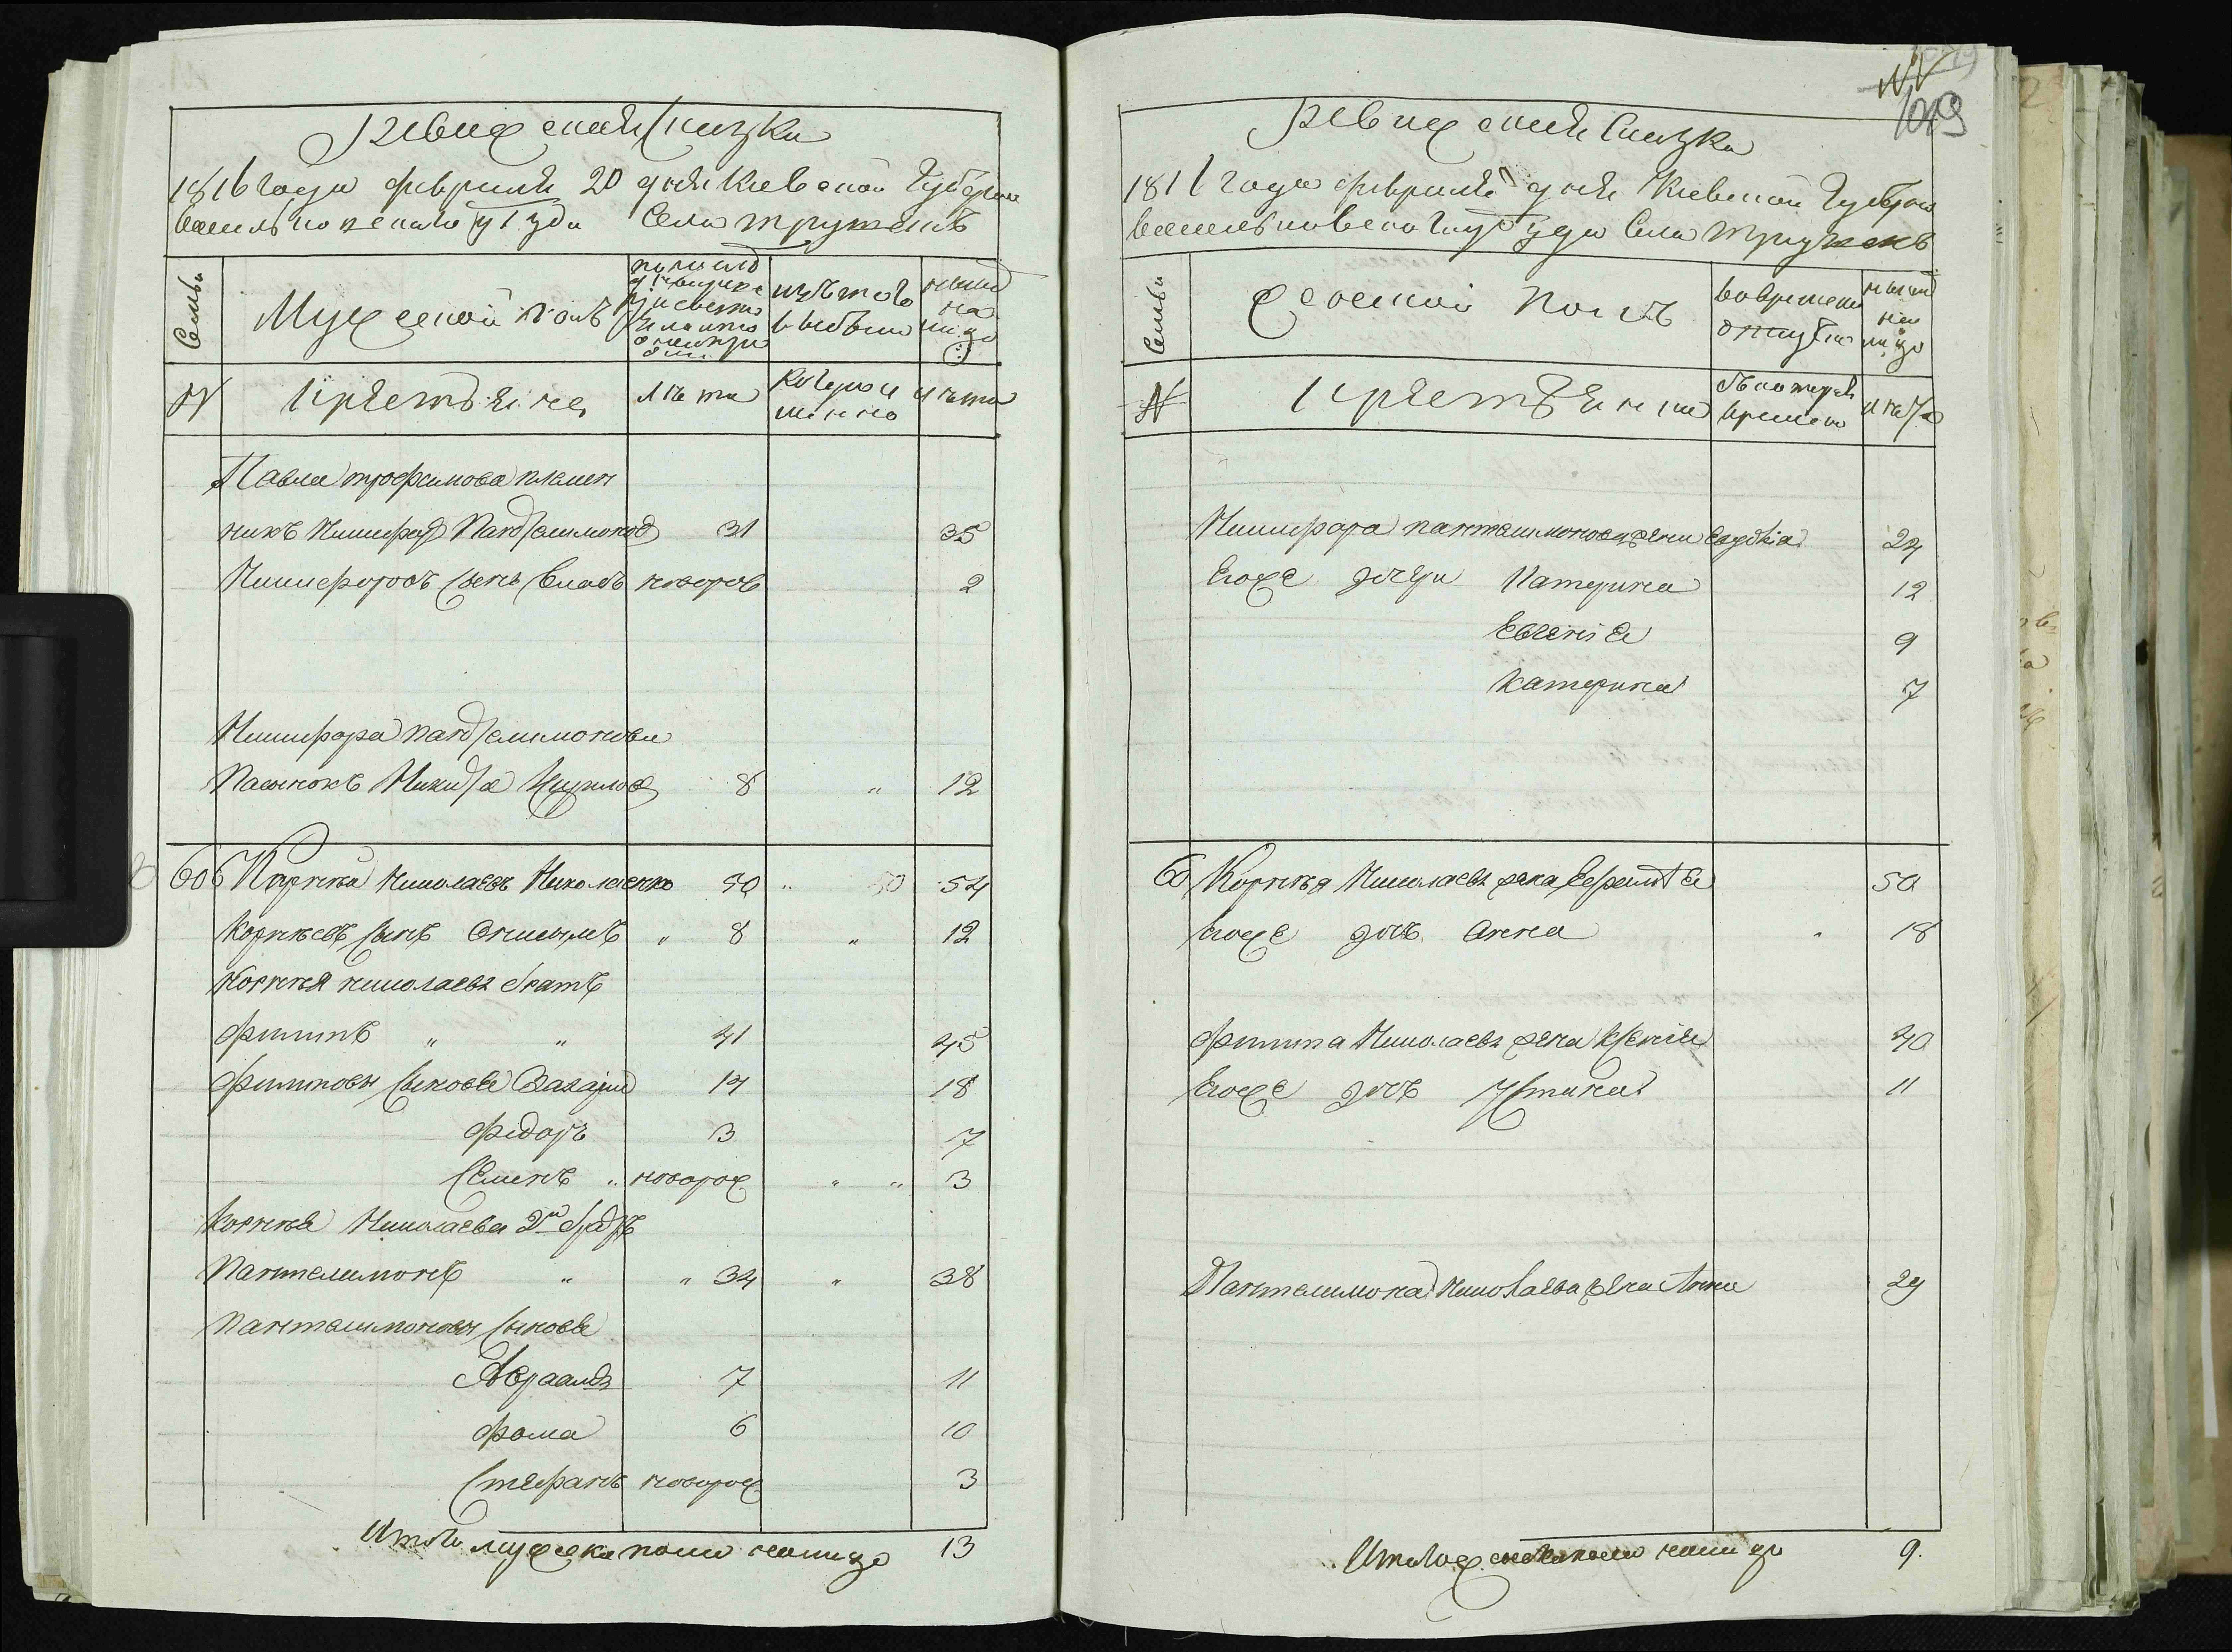 Ревижская Сказка
1816 года февраля 20 дня Киевской Губернии
васильковского уезда Села трушекъ
Семьи
Мужеской полъ
изъ того выбыло
ныне на лицо
№
Крестьяне
лета
когда именно
лета
Павла трофимова племен
никъ Никифоръ Пантелимонов 31 35
Никифоровъ сынъ новорож 2
Никифора Пантелимонова
Пасынокъ Никита Кирилов 8 " 12
60 Корней Николаевъ Николаенко 50 " 50 54
Корнеевъ сынъ Онисимъ " 8 " 12
Корнея николаева братъ
филипъ " " 41 45
филиповы сыновья Захарий 14 18
федоръ 3 7
Семенъ " новорож " " 3
Корнея Николаева 2й братъ
Пантелимонъ " " 34 " 38
Пантелимоновы сыновья
Авраамъ 7 11
фома 6 10
Стефанъ новорож 3
Итого мужеска пола налицо 13
1049
Ревижская Сказка
181 года февраля дня Киевской Губернии
васильковского уезда Села трушекъ
Семьи
Женской полъ
во временной отлучке
ныне на лицо
№
Крестьянки
съ котораго времени
лета
Никифора пантелимонова жена Евдокия 24
Егоже дочери Катерина 12
Евгения 9
Катерина 7
60 Корнея Николаева жена Евфимия 50
Егоже дочь Анна 18
филипа Николаева жена Ксения 40
Егоже дочь Устина 11
Пантелимона Николаева жена Анна 29
Итого женска пола налицо 9.